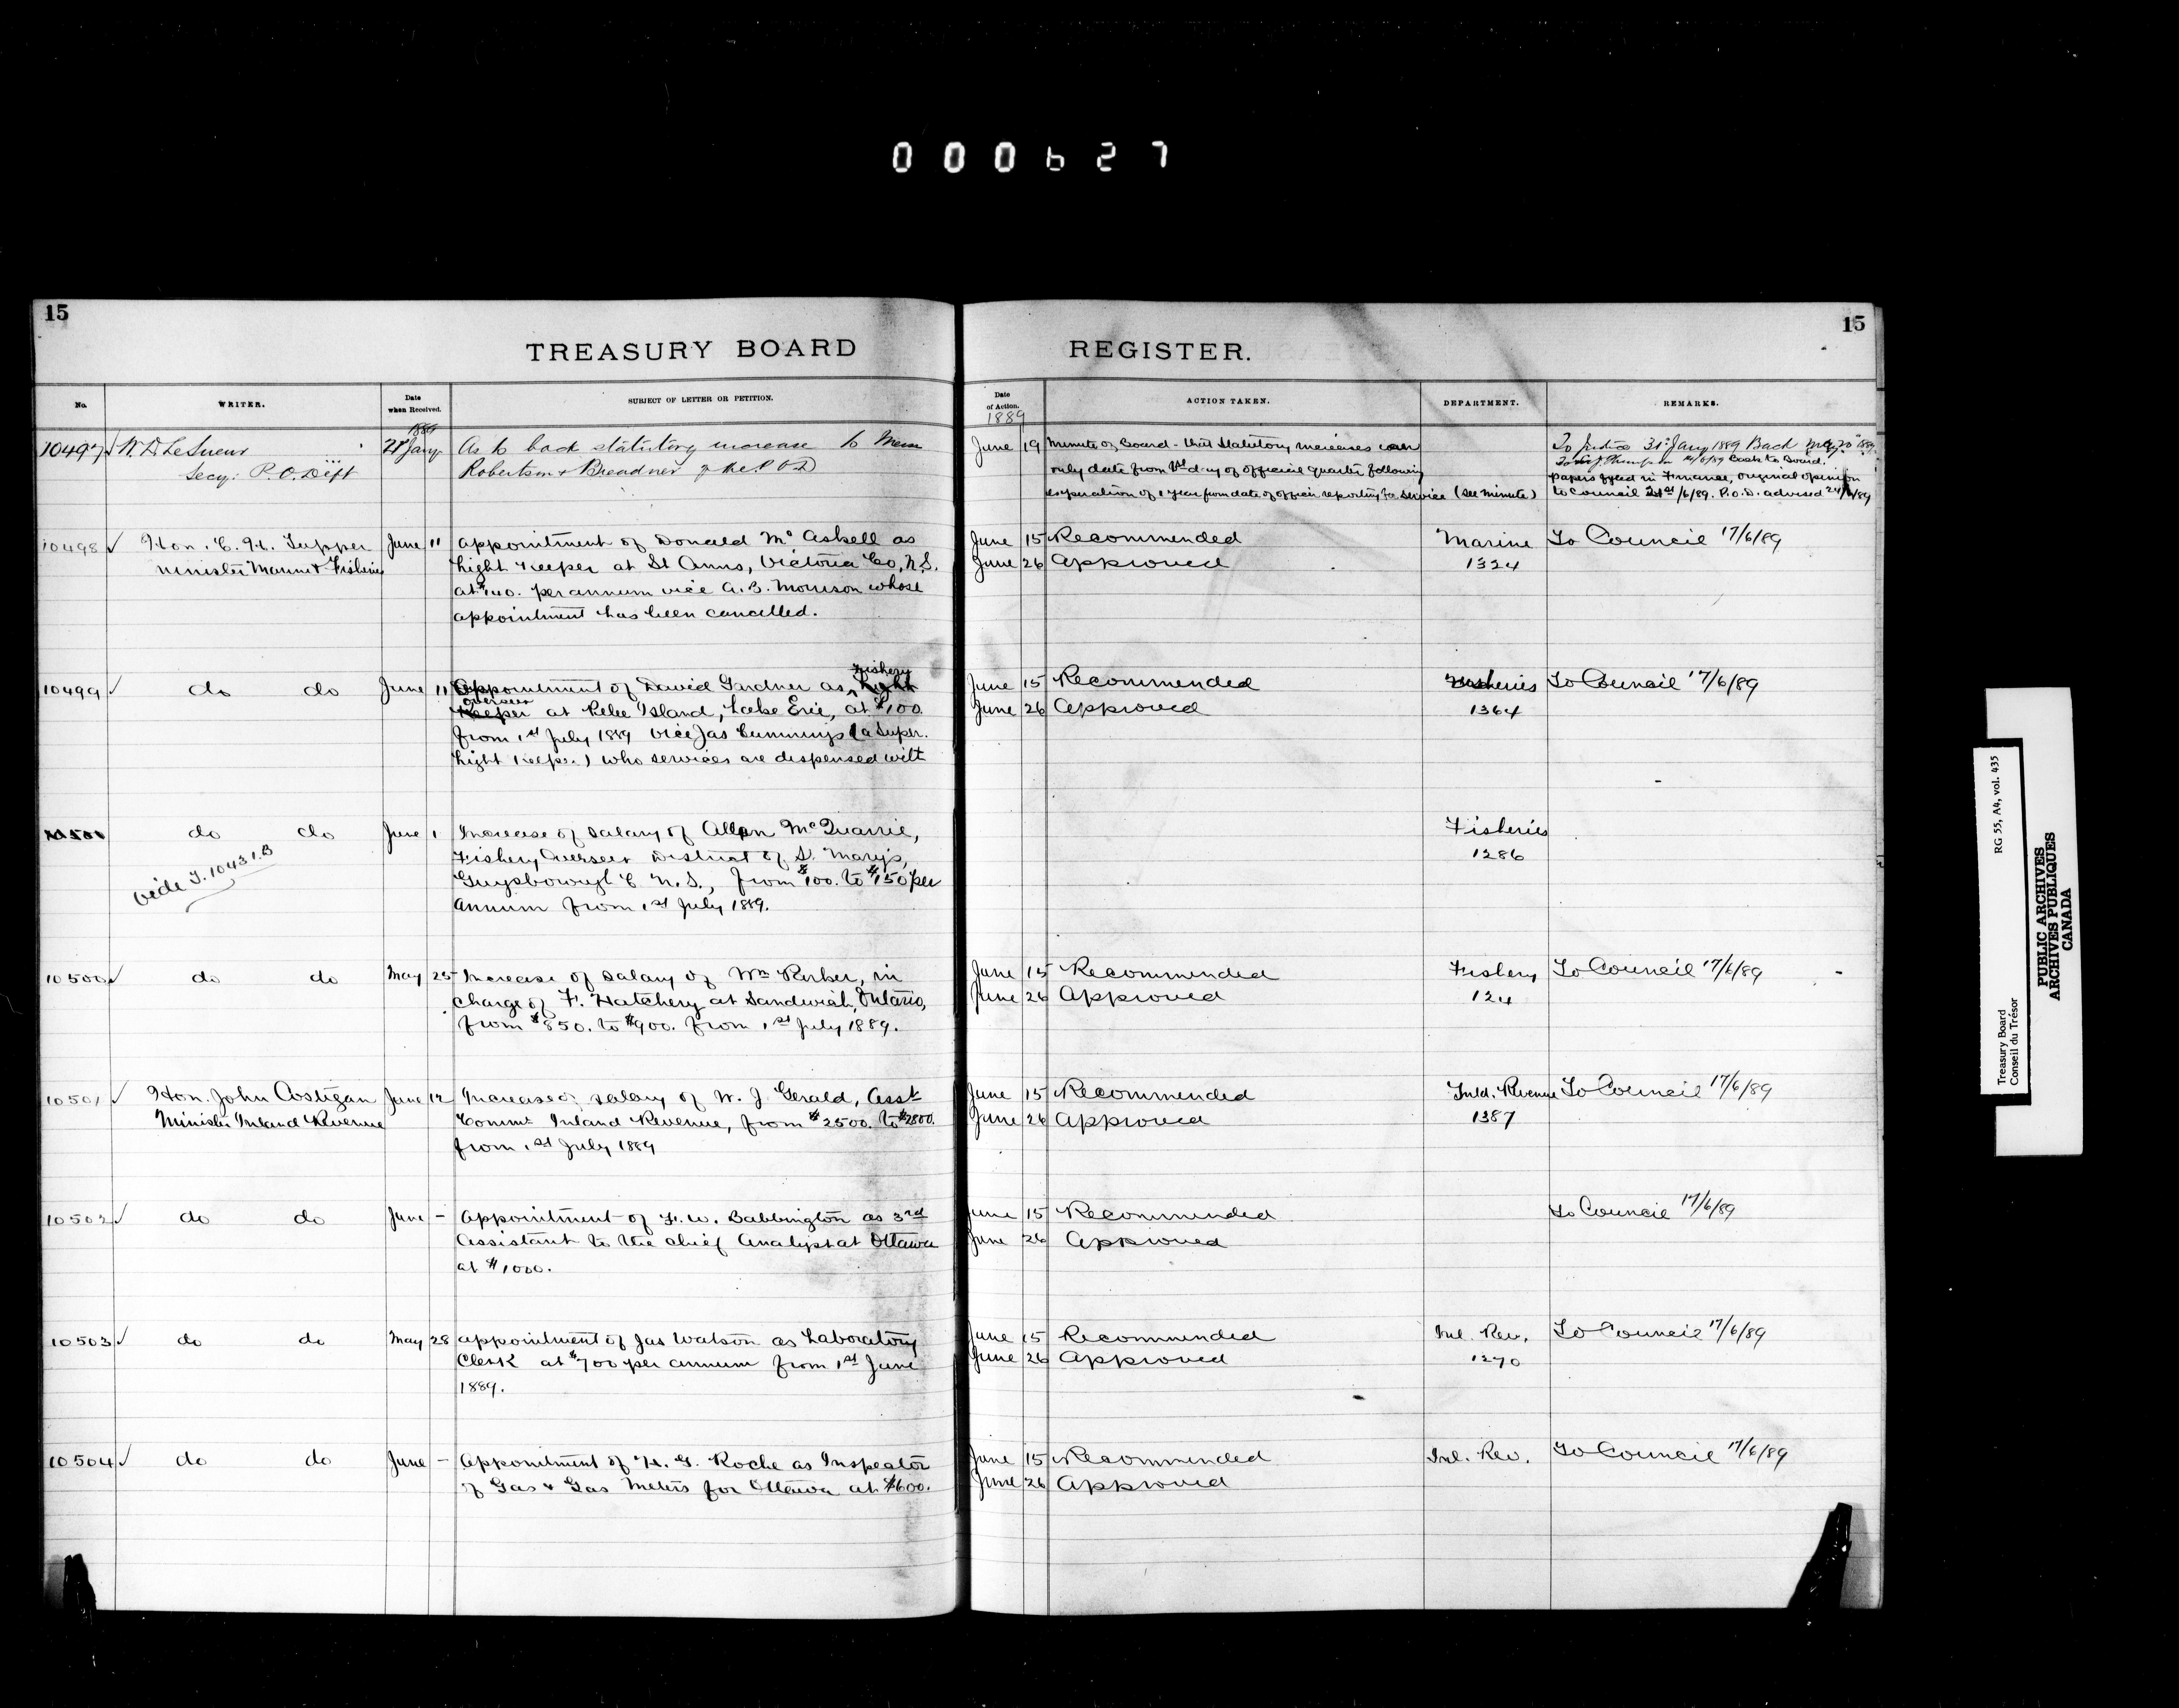 000627
15
TREASURY BOARD
REGISTER.
15
No.
WRITER.
Date
when Received.
SUBJECT OF LETTER OR PETITION.
Date
of Action.
ACTION TAKEN.
DEPARTMENT.
REMARKS.
1889
1889
10497 W. D. LeSueur 28 Jany As to back statutory increase to Messrs
Secy: P. O. Dept Robertson & Breadner of the P O D
June 19 Minute of Board - that Statutory increases can
only date from 1st day of official quarter following
expiration of 1 year from date of officer reporting for service (see minute)
To Justice 31st Jany 1889 Back May 20 1889
To Sir J. Thompson 14/6/89 back to Board.
papers fyled in Finance, original opinion
to Council 21st/6/89. P.O.D. advised 24/6/89
10498 Hon. C. H. Tupper June 11 Appointment of Donald Mc Askell as
Minister Marine & Fisheries Light Keeper at St Anns, Victoria Co, N.S.
at $140. per annum vice A. B. Morrison whose
appointment has been cancelled.
June 15 Recommended Marine To Council 17/6/89
June 26 Approved 1324
10499 do do June 11 Appointment of David Gardner as Fishery Light
overseer Keeper at Pelee Island, Lake Erie, at $100
from 1st July 1889 vice Jas Cummings (a Super.
Light Keeper) who services are dispensed with
June 15 Recommended Fisheries To Council 17/6/89
June 26 Approved 1364
do do June 1 Increase of salary of Allan McQuarrie,
vide T. 10431.B
Fishery Overseer District of St. Mary's,
Guysborough C. N.S., from $100. to $150 per
annum from 1st July 1889.
Fisheries
1286
10500 do do May 25 Increase of salary of Wm Parker, in
charge of F. Hatchery at Sandwich, Ontario,
from $850. to $900. from 1st July 1889.
June 15 Recommended Fishery To Council 17/6/89
June 26 Approved 124
10501 Hon. John Costigan June 12 Increase of salary of W. J. Gerald, Asst
Minister Inland Revenue Commr Inland Revenue, from $2500. to $2800.
from 1st July 1889
June 15 Recommended Inld. Revenue To Council 17/6/89
June 26 Approved 1387
10502 do do June - Appointment of F. W. Babbington as 3rd
Assistant to the Chief Analyst at Ottawa
at $1000.
June 15 Recommended To Council 17/6/89
June 26 Approved
10503 do do May 28 Appointment of Jas Watson as Laboratory
Clerk at $700 per annum from 1st June
1889.
June 15 Recommended Inl. Rev. To Council 17/6/89
June 26 Approved 1270
10504 do do June - Appointment of H. G. Roche as Inspector
of Gas & Gas Meters for Ottawa at $600.
June 15 Recommended Inl. Rev. To Council 17/6/89
June 26 Approved
Treasury Board
Conseil du Trésor
RG 55, A4, vol. 435
PUBLIC ARCHIVES
ARCHIVES PUBLIQUES
CANADA